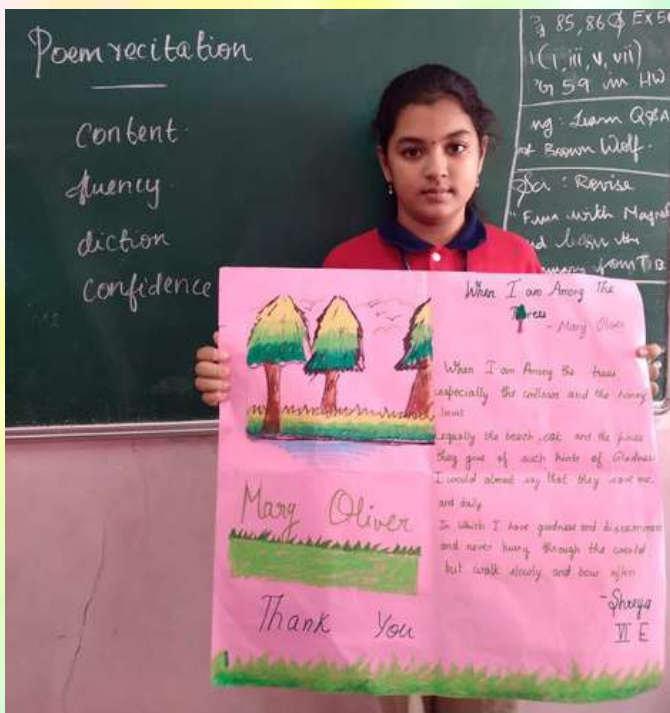 Poem recitation
content
fluency
diction
confidence
85, 86 Ex 5
1(i, iii, v, vii)
59 in HW
ng: Learn Q&A
of Brown Wolf.
: Revise
"Fun with Magne
d learn the
from TB
When I am Among The
Trees
- Mary Oliver
When I am Among the trees
especially the and the honey
equally the beech, oak and the pines
they give of such hints of Gladness
I would almost say that they save me
and daily
In which I have goodness and discernment
and never hurry through the world
but walk slowly and bow often
Mary Oliver
Thank You
- Shreya
VI E